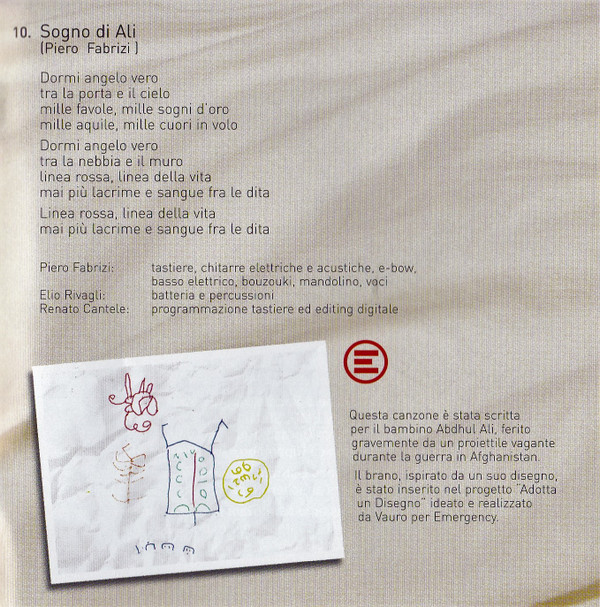 10. Sogno di Ali
(Piero Fabrizi)
Dormi angelo vero
tra la porta e il cielo
mille favole, mille sogni d'oro
mille aquile, mille cuori in volo
Dormi angelo vero
tra la nebbia e il muro
linea rossa, linea della vita
mai più lacrime e sangue fra le dita
Linea rossa, linea della vita
mai più lacrime e sangue fra le dita
Piero Fabrizi: tastiere, chitarre elettriche e acustiche, e-bow,
basso elettrico, bouzouki, mandolino, voci
Elio Rivagli: batteria e percussioni
Renato Cantele: programmazione tastiere ed editing digitale
E
Questa canzone è stata scritta
per il bambino Abdhul Ali, ferito
gravemente da un proiettile vagante
durante la guerra in Afghanistan.
Il brano, ispirato da un suo disegno,
è stato inserito nel progetto "Adotta
un Disegno" ideato e realizzato
da Vauro per Emergency.